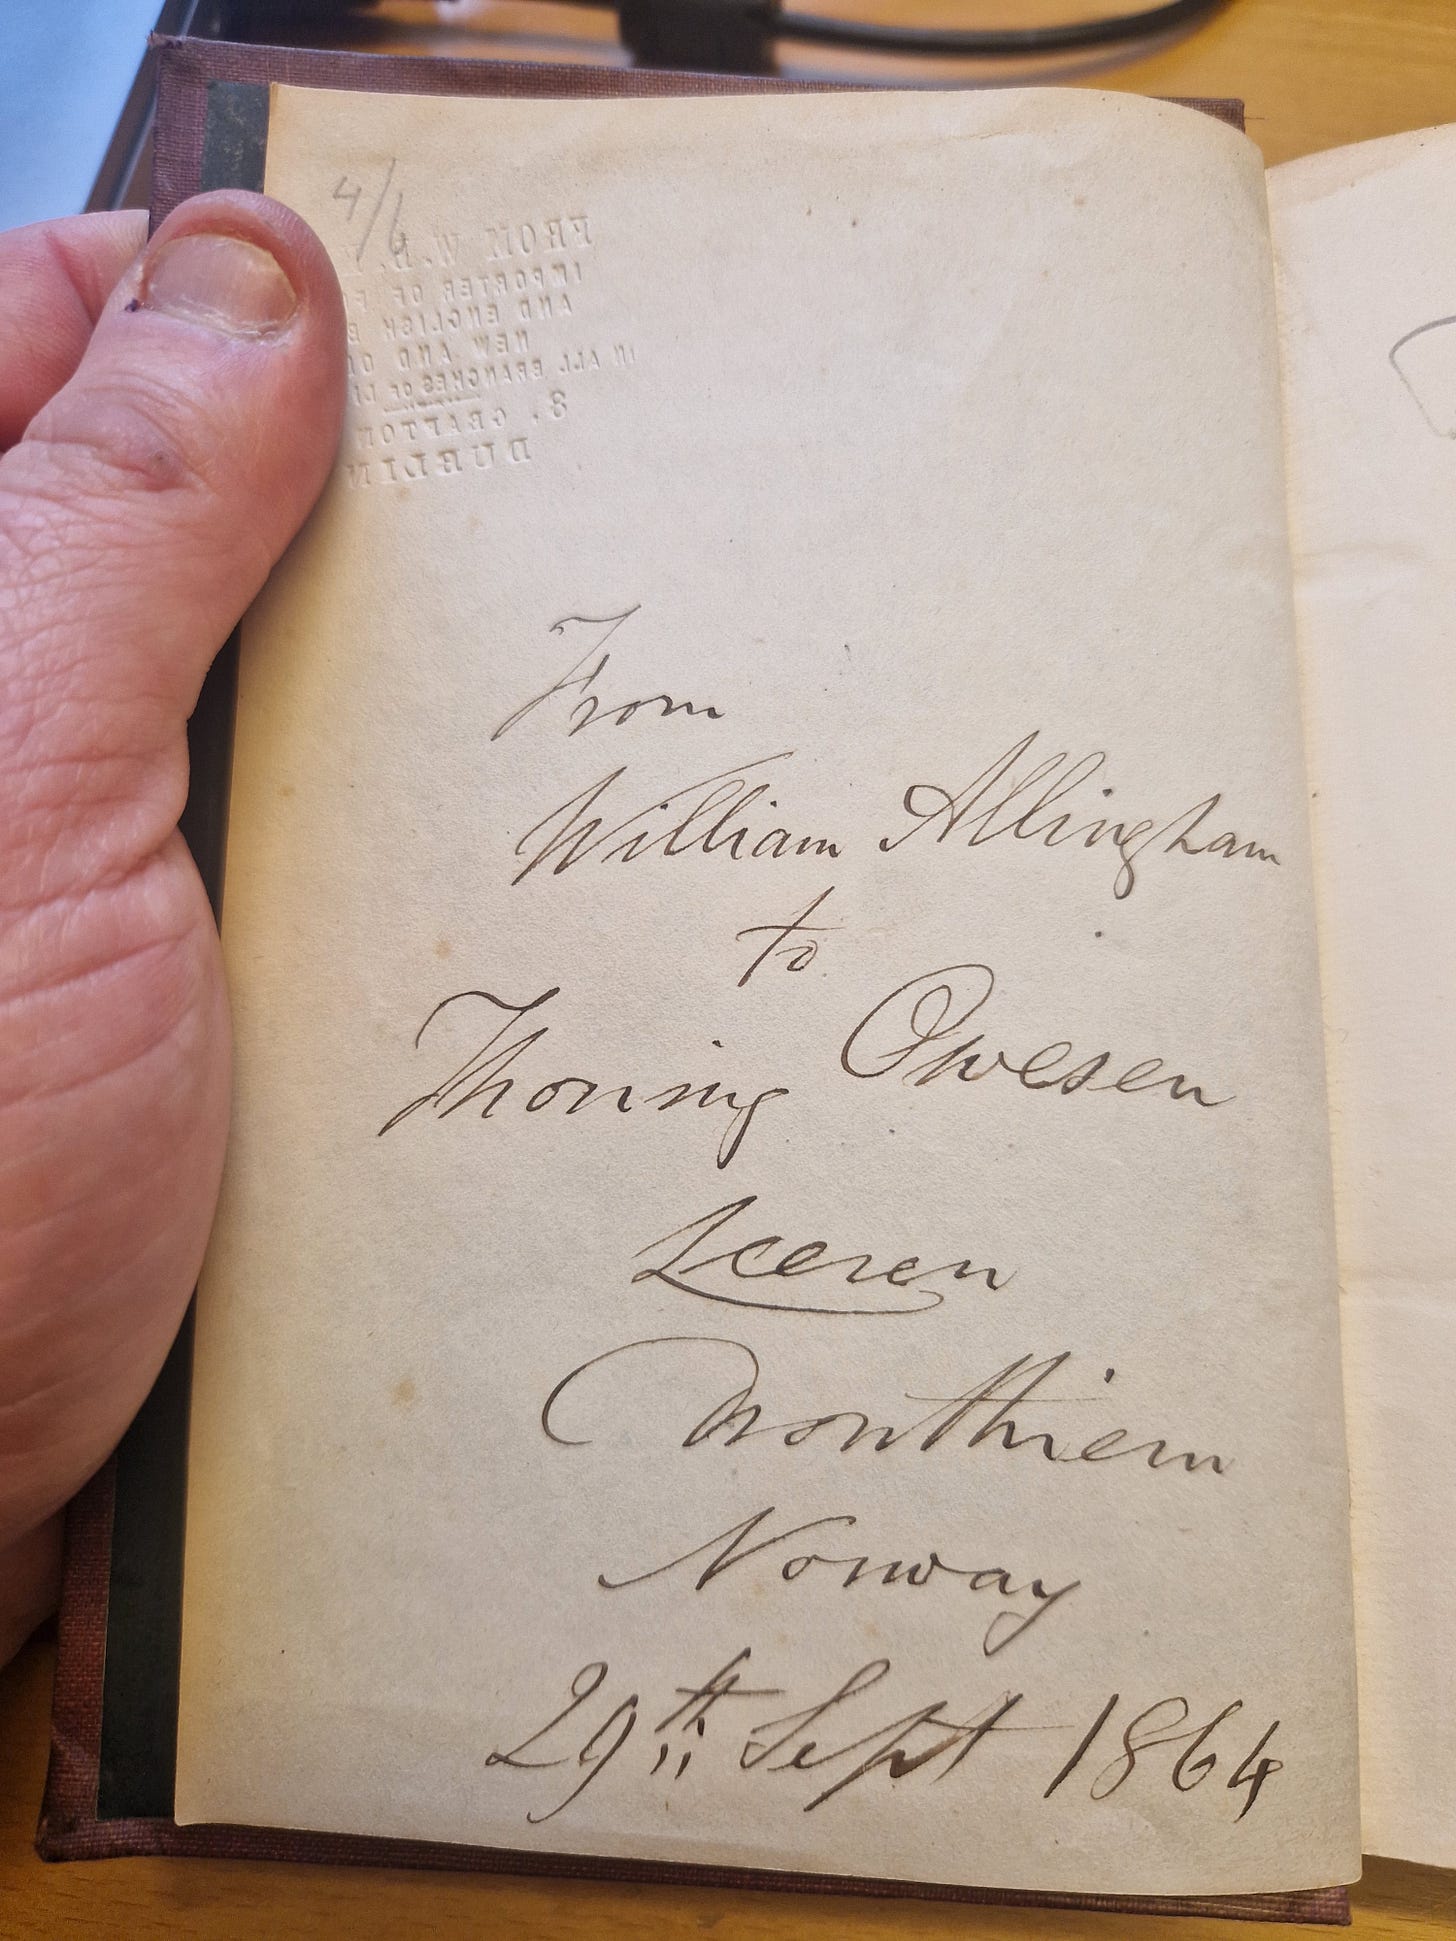 4/6
FROM W. B.
IMPORTER OF
AND ENGLISH
NEW AND
IN ALL BRANCHES OF
8, GRAFTON
DUBLIN
From
William Allingham
to
Thoning Owesen
Leeren
Dronthiem
Norway
29th Sept 1864